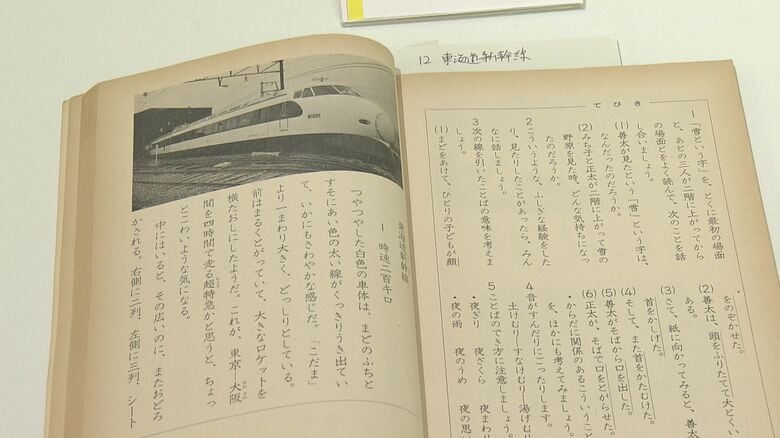 12 東海道新幹線
てびき
1 「雪という字」を、とくに最初の場面
と、あとの三人が二階に上がってから
の場面とをよく読んで、次のことを話
し合いましょう。
(1) 善太が見たという「雪」という字は、
なんだったのだろうか。
(2) みち子と正太が二階に上がって雪の
野原を見た時、どんな気持ちになっ
たのだろうか。
2 こういうような、ふしぎな経験をした
り、見たりしたことがあったら、みん
なに話しましょう。
3 次の線を引いたことばの意味を考えま
しょう。
(1) まどをあけて、ひとりの子どもが顔
をのぞかせた。
(2) 善太は、頭をふりたてて大とくい
ある。
(3) さて、紙に向かってみると、善太
首をかしげた。
(4) そして、また首をかたむけた。
(5) 善太がそばから口を出した。
(6) 正太が、そばで口をとがらせた。
・からだに関係のあるこういうこ
を、ほかにも考えてみましょう。
4 音がすんだりにごったりします。
土けむり―すなけむり―湯けむり
5 ことばのでき方に注意しましょう。
・夜ぎり 夜ざくら 夜まわり
・夜の雨 夜のうめ 夜の思
東海道新幹線
1 時速二百キロ
つやつやした白色の車体は、まどのふちと
すそにあい色の太い線がくっきりうき出てい
て、いかにもさわやかな感じだ。「こだま」
より一まわり大きく、どっしりとしている。
前はまるくとがっていて、大きなロケットを
横たおしにしたようだ。これが、東京―大阪
間を四時間で走る超特急かと思うと、ちょっ
とこわいような気になる。
中にはいると、その広いのに、またおどろ
かされる。右側に二列、左側に三列、シート